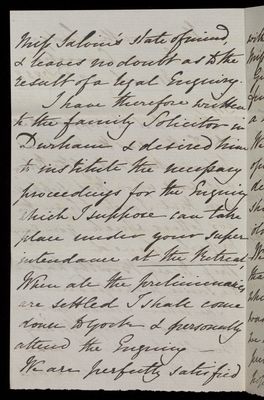 Miss Salvin's state of mind
& leaves no doubt as to the
result of a legal Enquiry.
I have therefore written
to the family Solicitor in
Durham & desired him
to institute the necessary
proceedings for the Enquiry
which I suppose can take
place under your super
intendance at the Retreat
When all the preliminaries
are settled I shall come
down to York & personally
attend the Enquiry —
We are perfectly satisfied